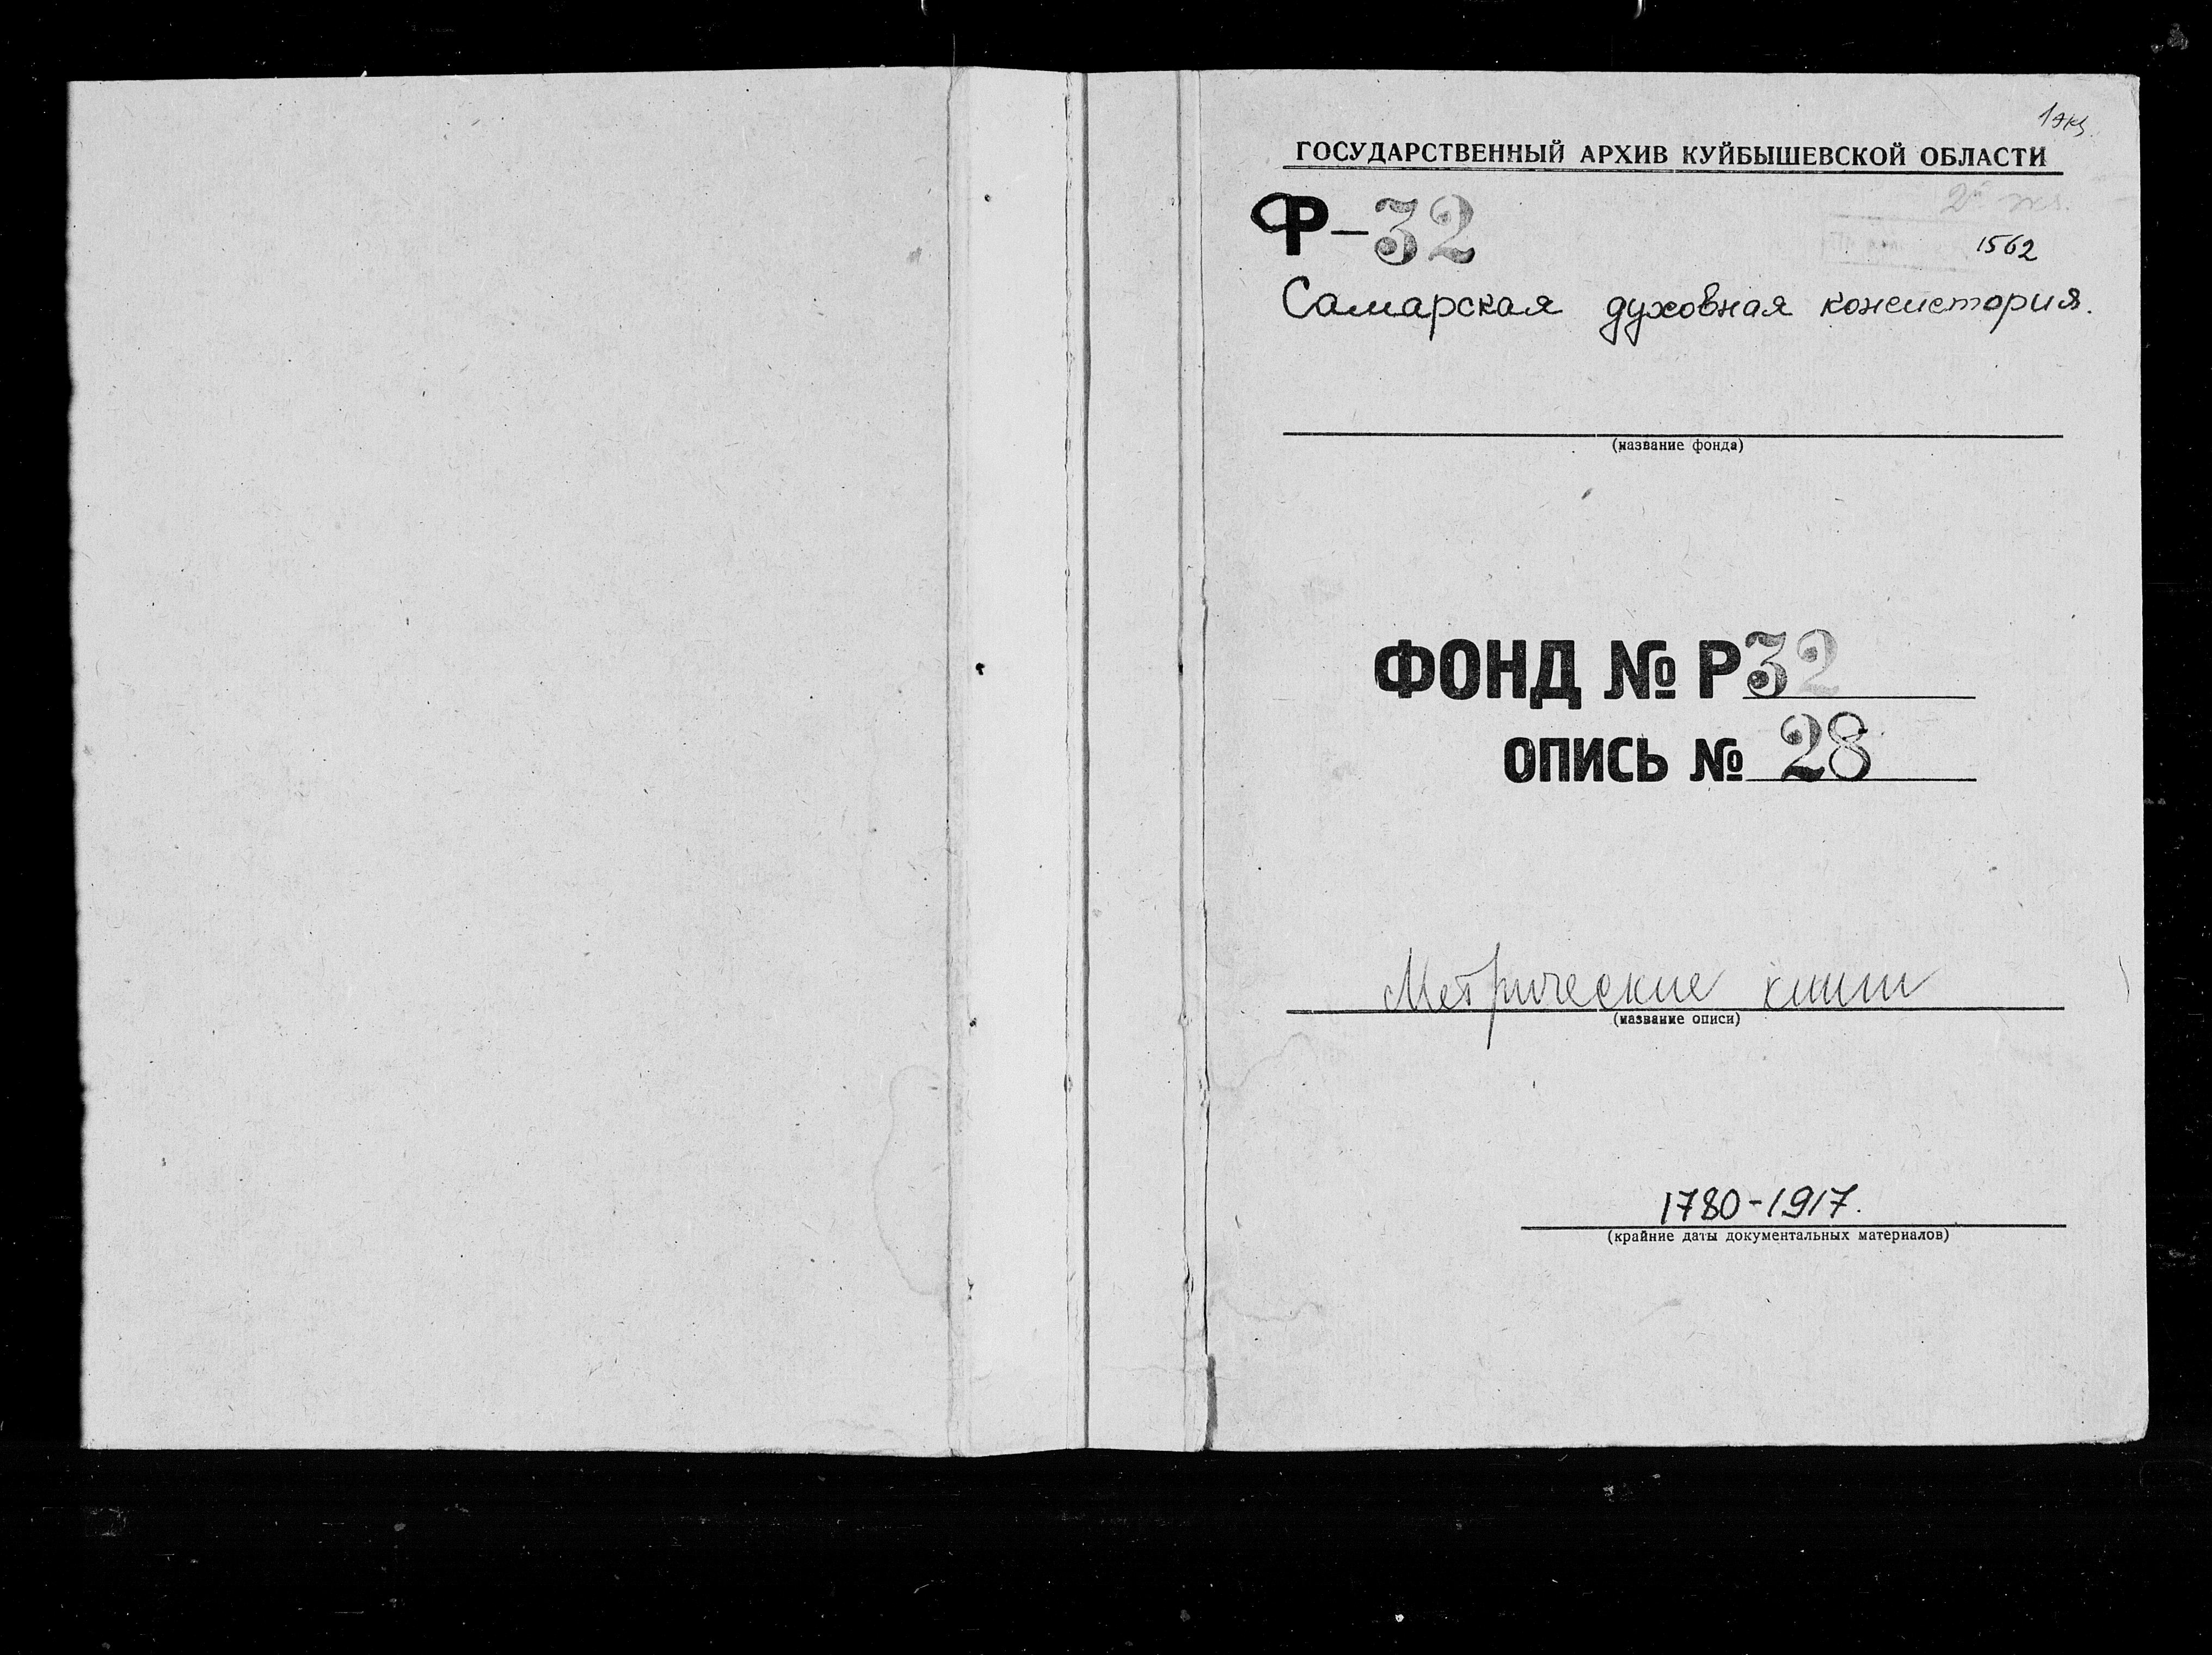 1 экз.
ГОСУДАРСТВЕННЫЙ АРХИВ КУЙБЫШЕВСКОЙ ОБЛАСТИ
2й экз.
Ф-32
1562
Самарская духовная консистория.
(название фонда)
ФОНД № Р32
ОПИСЬ № 28
Метрические книги
(название описи)
1780-1917.
(крайние даты документальных материалов)